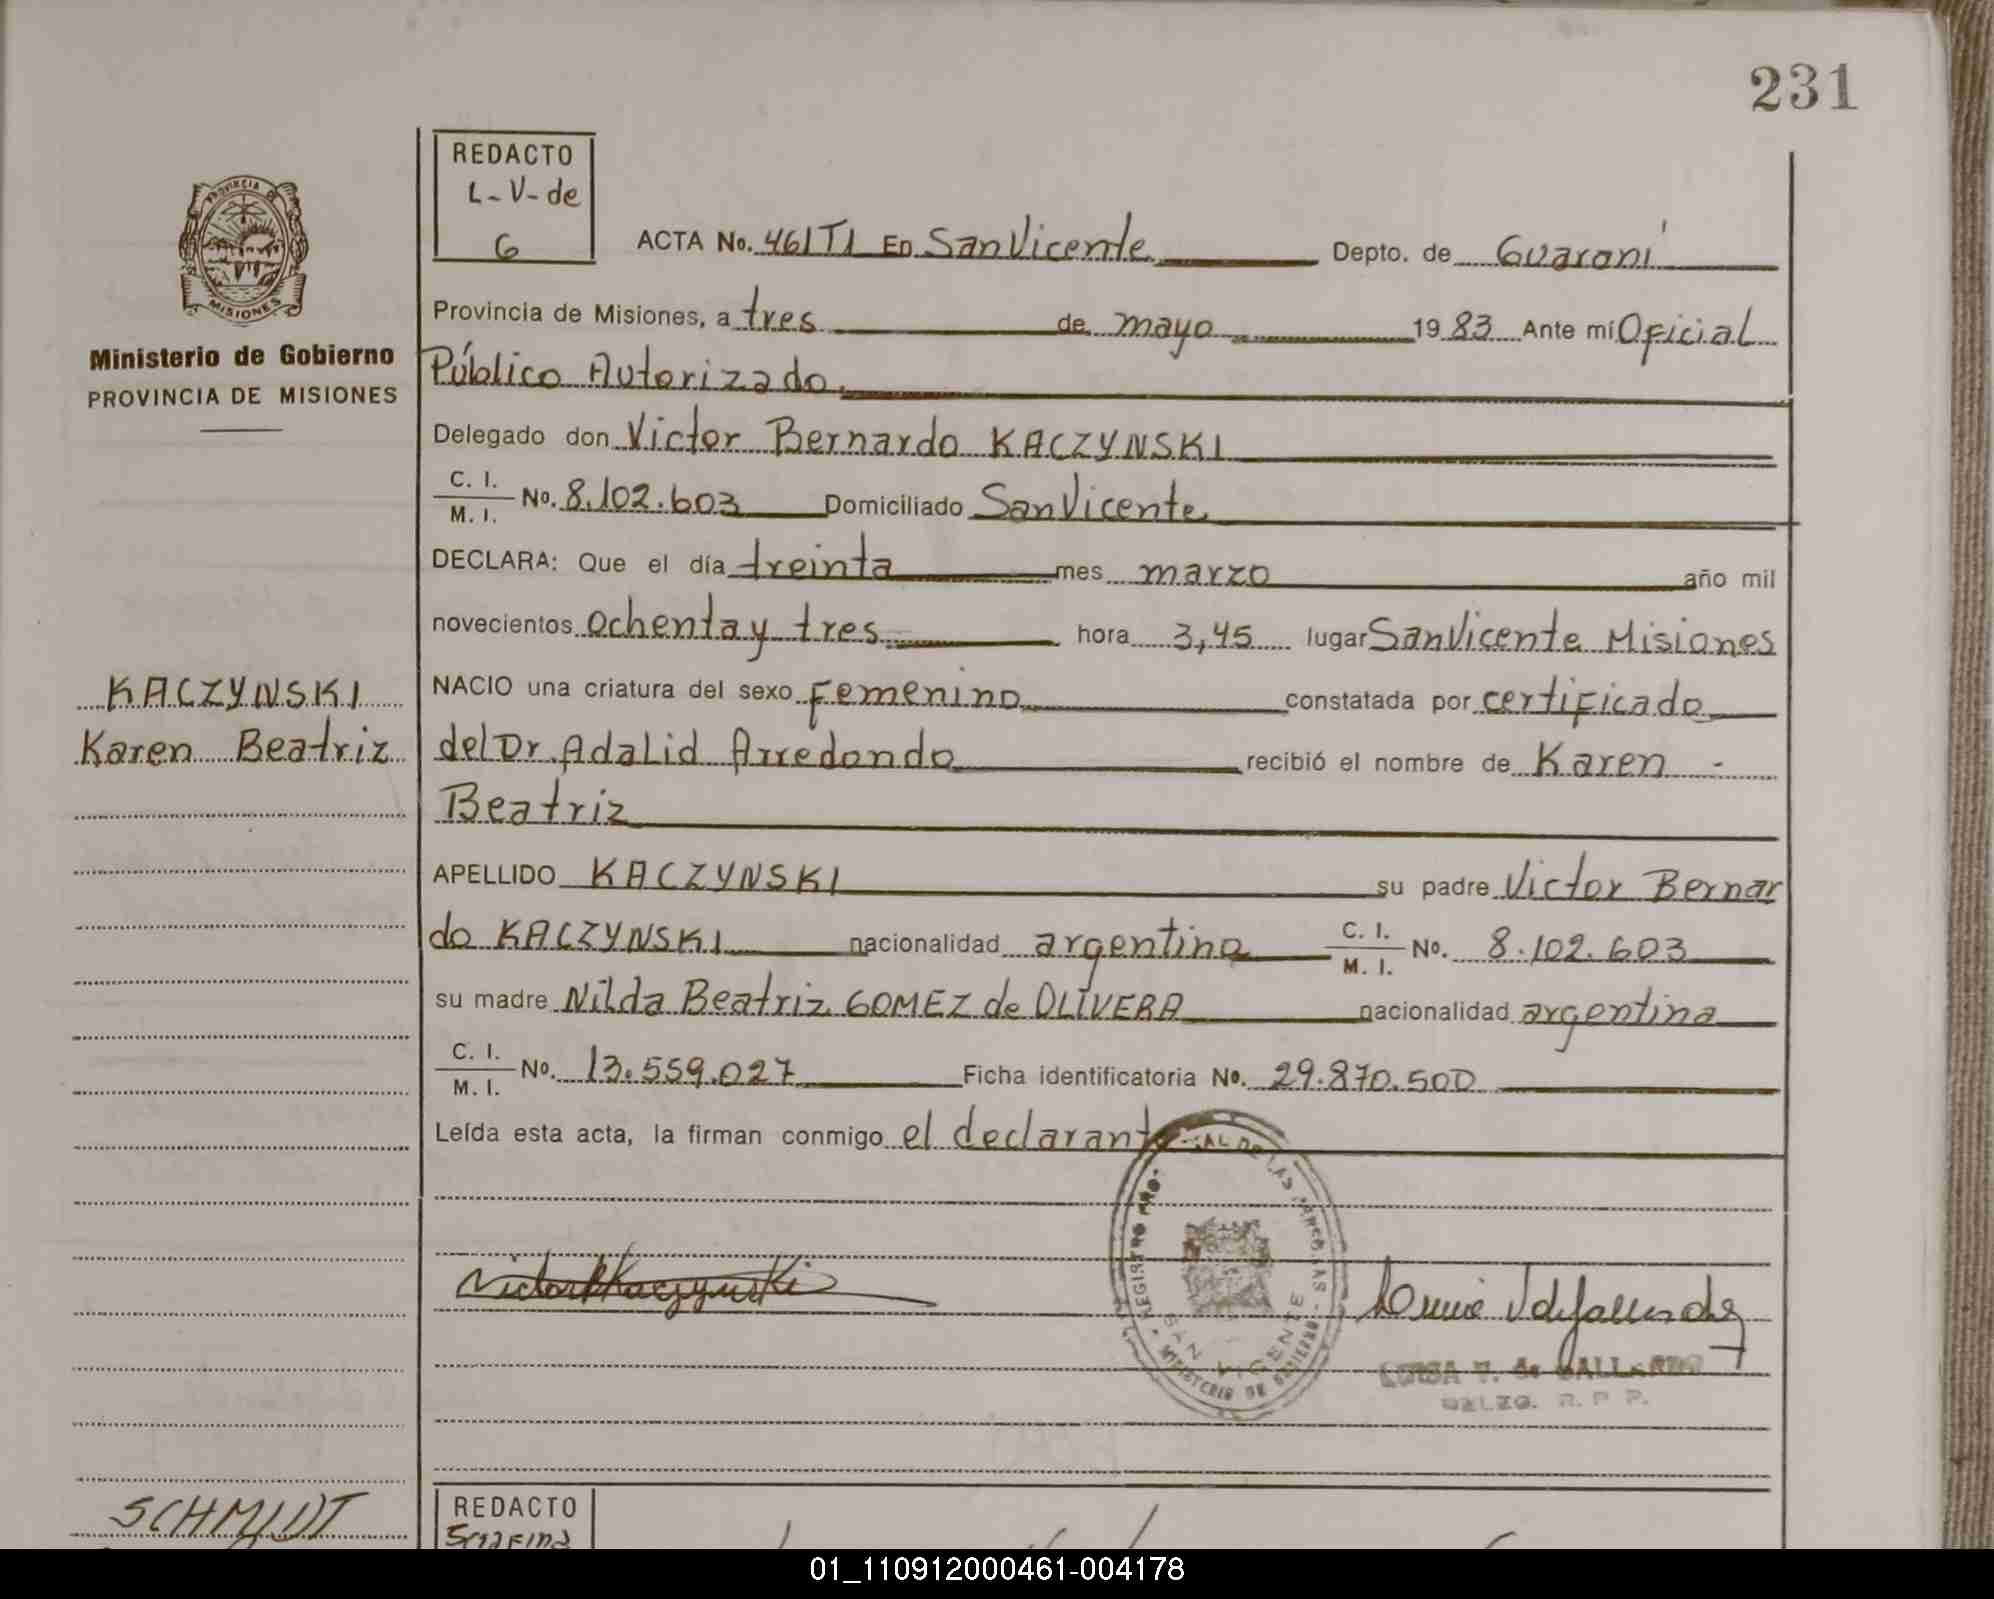 231
REDACTO
L-V-de
G
PROVINCIA DE
MISIONES
Ministerio de Gobierno
PROVINCIA DE MISIONES
ACTA No. 461TI En San Vicente Depto. de Guaraní
Provincia de Misiones, a tres de mayo 1983 Ante mí Oficial
Público Autorizado.
Delegado don Victor Bernardo KACZYNSKI
C. I. / M. I. No. 8.102.603 Domiciliado San Vicente
DECLARA: Que el día treinta mes marzo año mil
novecientos ochenta y tres hora 3,45 lugar San Vicente Misiones
KACZYNSKI
Karen Beatriz
NACIO una criatura del sexo femenino constatada por certificado
del Dr. Adalid Arredondo recibió el nombre de Karen -
Beatriz
APELLIDO KACZYNSKI su padre Victor Bernar
do KACZYNSKI nacionalidad argentina C. I. / M. I. No. 8.102.603
su madre Nilda Beatriz GOMEZ de OLIVERA nacionalidad argentina
C. I. / M. I. No. 13.559.027 Ficha identificatoria No. 29.870.500
Leída esta acta, la firman conmigo el declarante
REGISTRO PRO. DE LAS
SAN VICENTE
MINISTERIO DE GOBIERNO
LUISA V. de GALLARDO
DELEG. R. P. P.
SCHMIDT
REDACTO
01_110912000461-004178